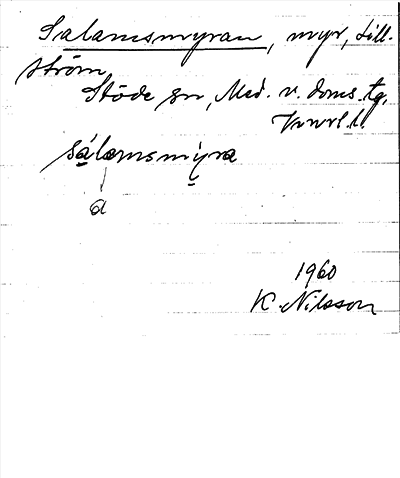 Salamsmyran, myr, Lill-
ström,
Stöde sn, Med. v. doms.tg,
Vnrl.l.
sálamsmỳra
a
1960
K. Nilsson